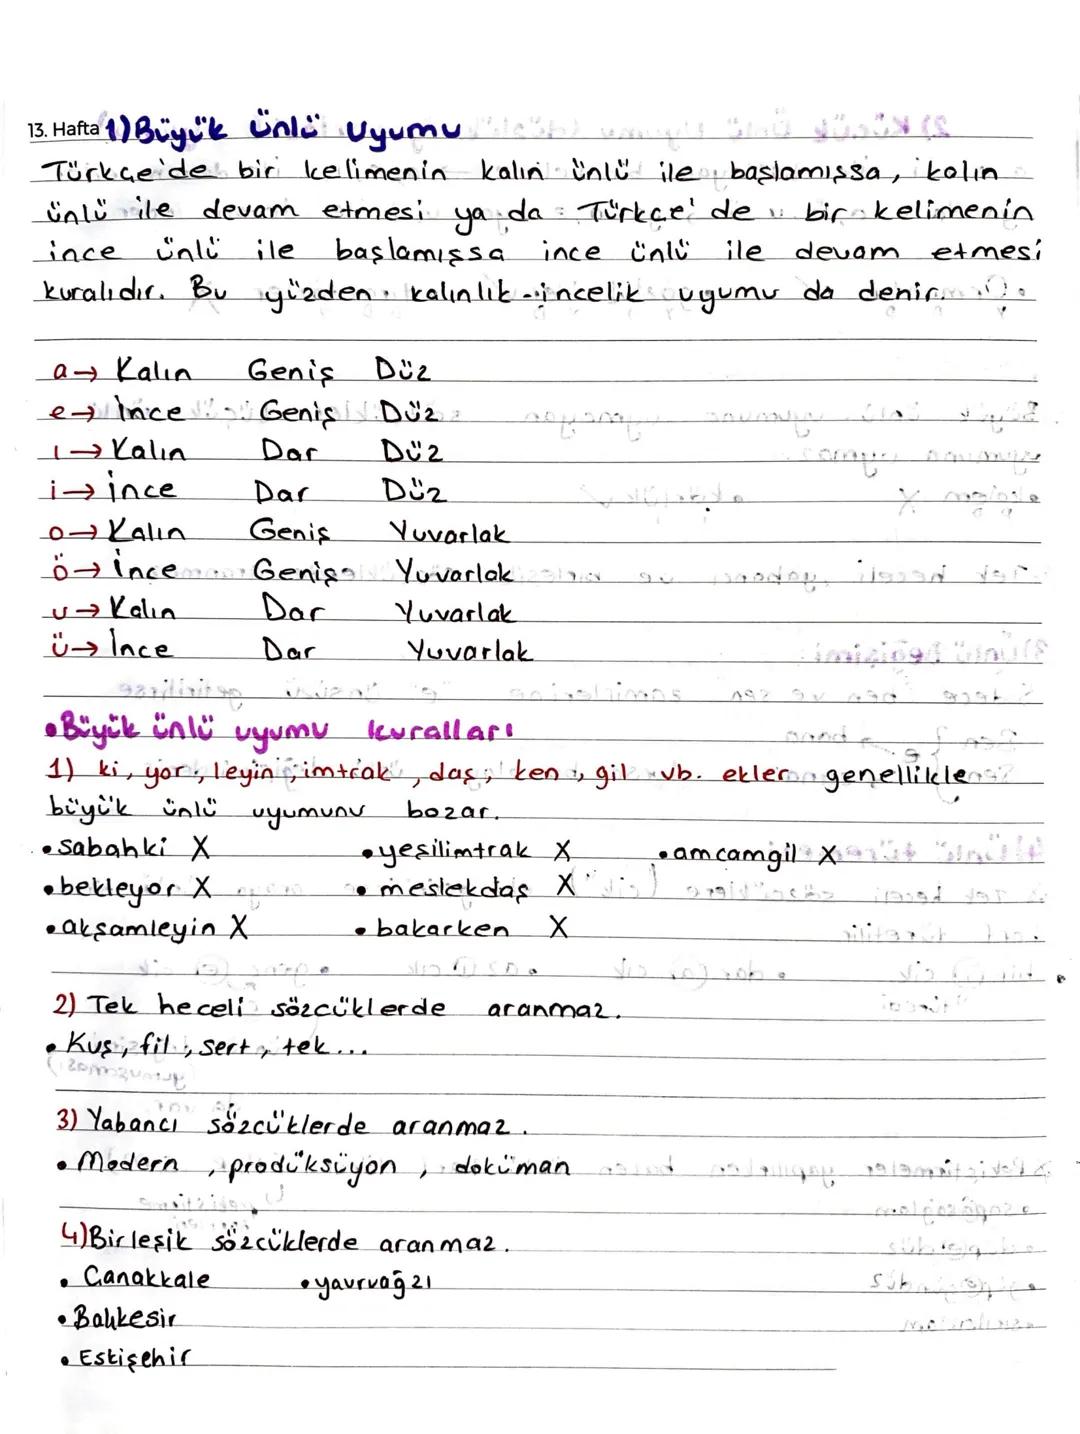 13. Hafta 1) Büyük Ünlü Uyumu
Türkçe'de bir kelimenin kalın ünlü ile başlamışsa, kalın
ünlü ile devam etmesi ya da Türkçe'de bir kelimenin
ince ünlü ile başlamışsa ince ünlü ile devam etmesi
kuralıdır. Bu yüzden kalınlık-incelik uyumu da denir.
a→ Kalın Geniş Düz
e→ İnce Geniş Düz
ı→ Kalın Dar Düz
i→ ince Dar Düz
o→ Kalın Geniş Yuvarlak
ö→ İnce Geniş Yuvarlak
u→ Kalın Dar Yuvarlak
ü→ İnce Dar Yuvarlak
• Büyük ünlü uyumu kuralları
1) ki, yor, leyin, imtrak, daş, ken, gil vb. ekler genellikle
büyük ünlü uyumunu bozar.
• sabahki X • yeşilimtrak X • amcamgil X
• bekleyor X • meslekdaş X
• akşamleyin X • bakarken X
2) Tek heceli sözcüklerde aranmaz.
• Kuş, fil, sert, tek...
3) Yabancı sözcüklerde aranmaz.
• Modern, prodüksüyon, doküman
4) Birleşik sözcüklerde aranmaz.
• Çanakkale • yavruağzı
• Balıkesir
• Eskişehir